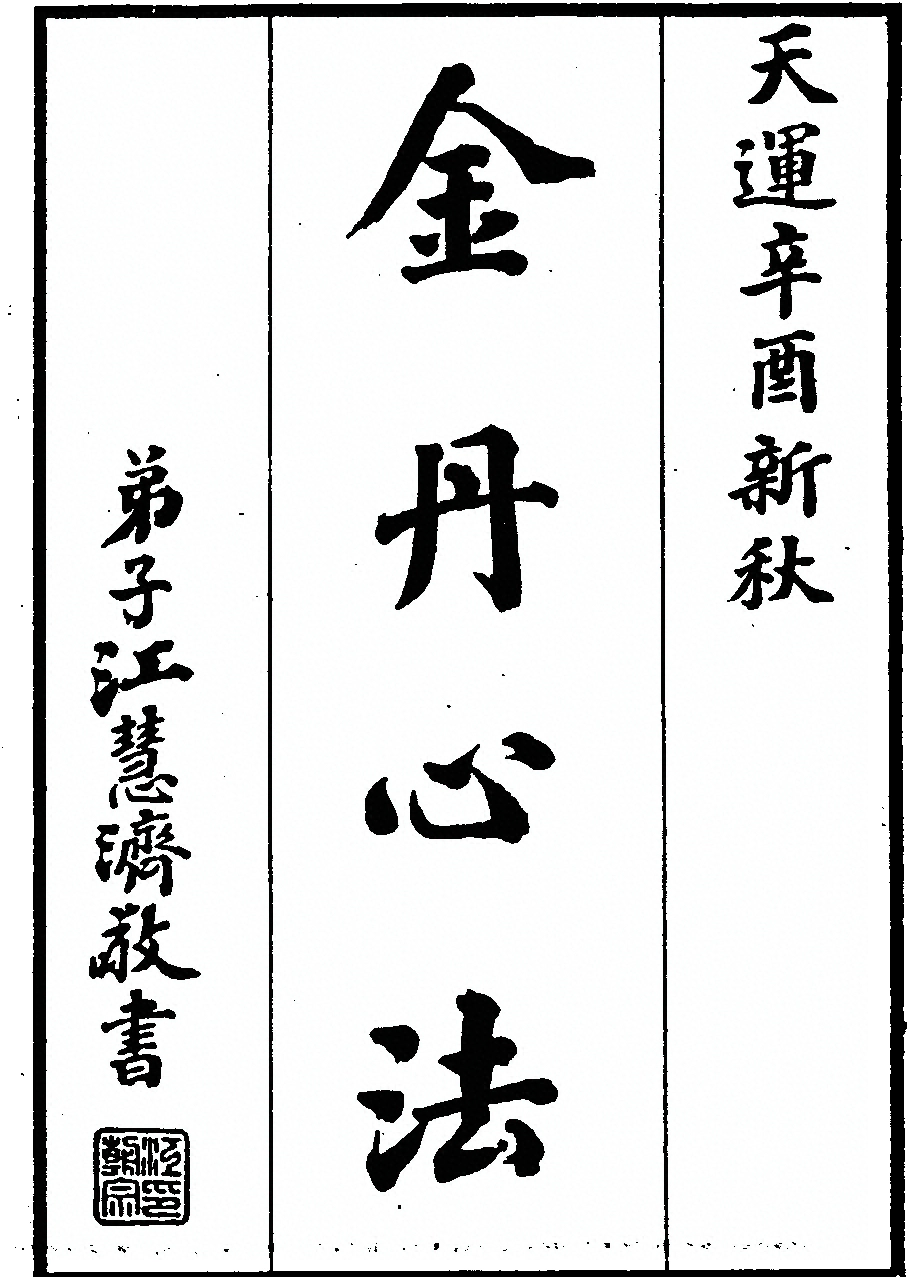 天運辛酉新秋
金丹心法
弟子江慧濟敬書
江朝宗印